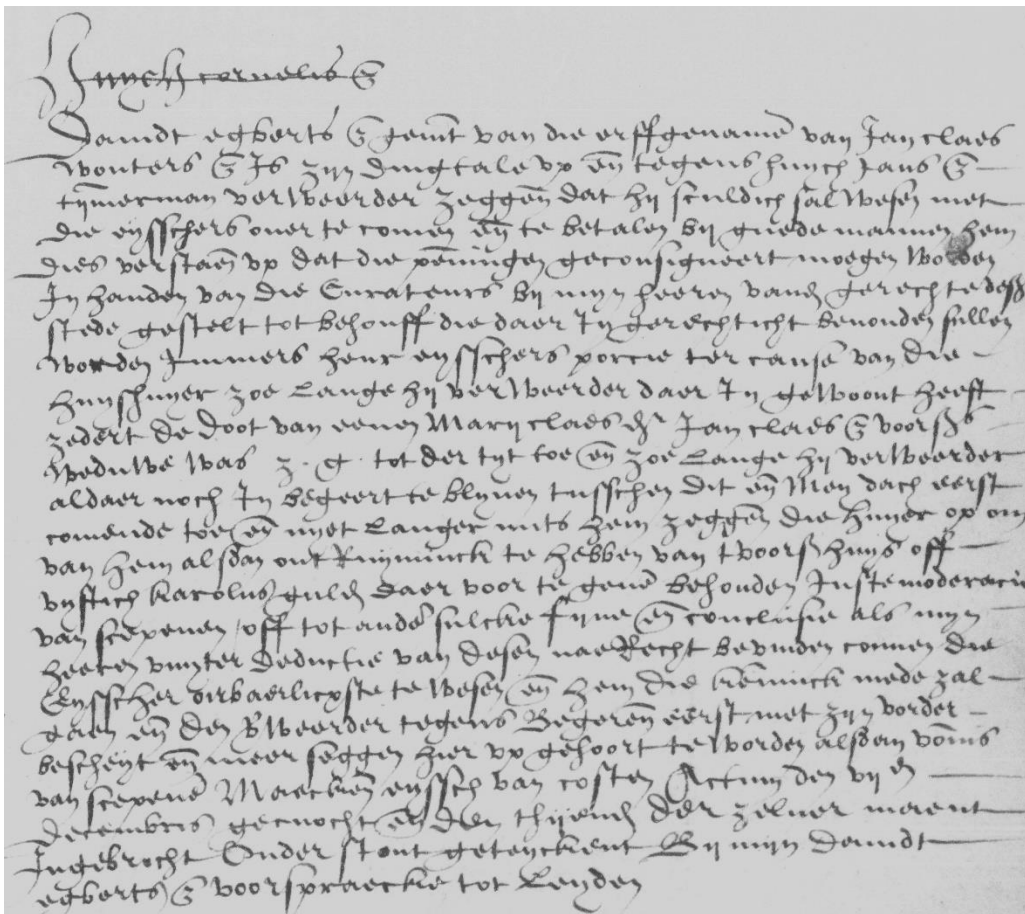 Huych cornelis z
Davidt egberts z gemt van die erffgename van Jan claes
wouters z Is zijn dingtale vp en tegens huych Jans z
tijmerman verweerder zeggen dat hij sculdich sal wesen met
die eysschers over te comen en te betalen bij guede mannen hem
dies verstaen vp dat die penningen geconsigneert moegen worden
In handen van die Curateurs bij mijn heeren vanden gerechte deser
stede gestelt tot behouff die daer In gerechticht bevonden sullen
worden Immers heur eysschers porcie ter cause van die
huyshuyer zoe lange hij verweerder daer In gewoont heeft
zedert de doot van eenen Marij claes dr Jan claes z voorss
weduwe was z. g. tot der tyt toe en zoe lange hij verweerder
aldaer noch In begeert te blyven tusschen dit en Mey dach eerst
comende toe en nyet langer mits hem zeggen die huyer op om
van hem alsdan ontruyminck te hebben van tvoors huys off
vijftich karolus guld daer voor te geven behouden Juste moderacie
van scepenen / off tot ander sulcke fyne en conclusie als mijn
heeren vuyter deductie van desen nae Recht bevinden connen die
Eysscher oirbaerlicxste te wesen en hem die kennick mede zal
gaen en den verweerder tegens Begeren eerst met zijn vorder
bescheyt en meer seggen hier vp gehoort te worden alsdan vonnis
van scepene Maecken eyssch van costen Actum den vij en
decembris genocht en den thijende der zelver maent
Ingebrocht Onder stont geteyckent Bij mijn davidt
egberts z voorspraecke tot Leyden